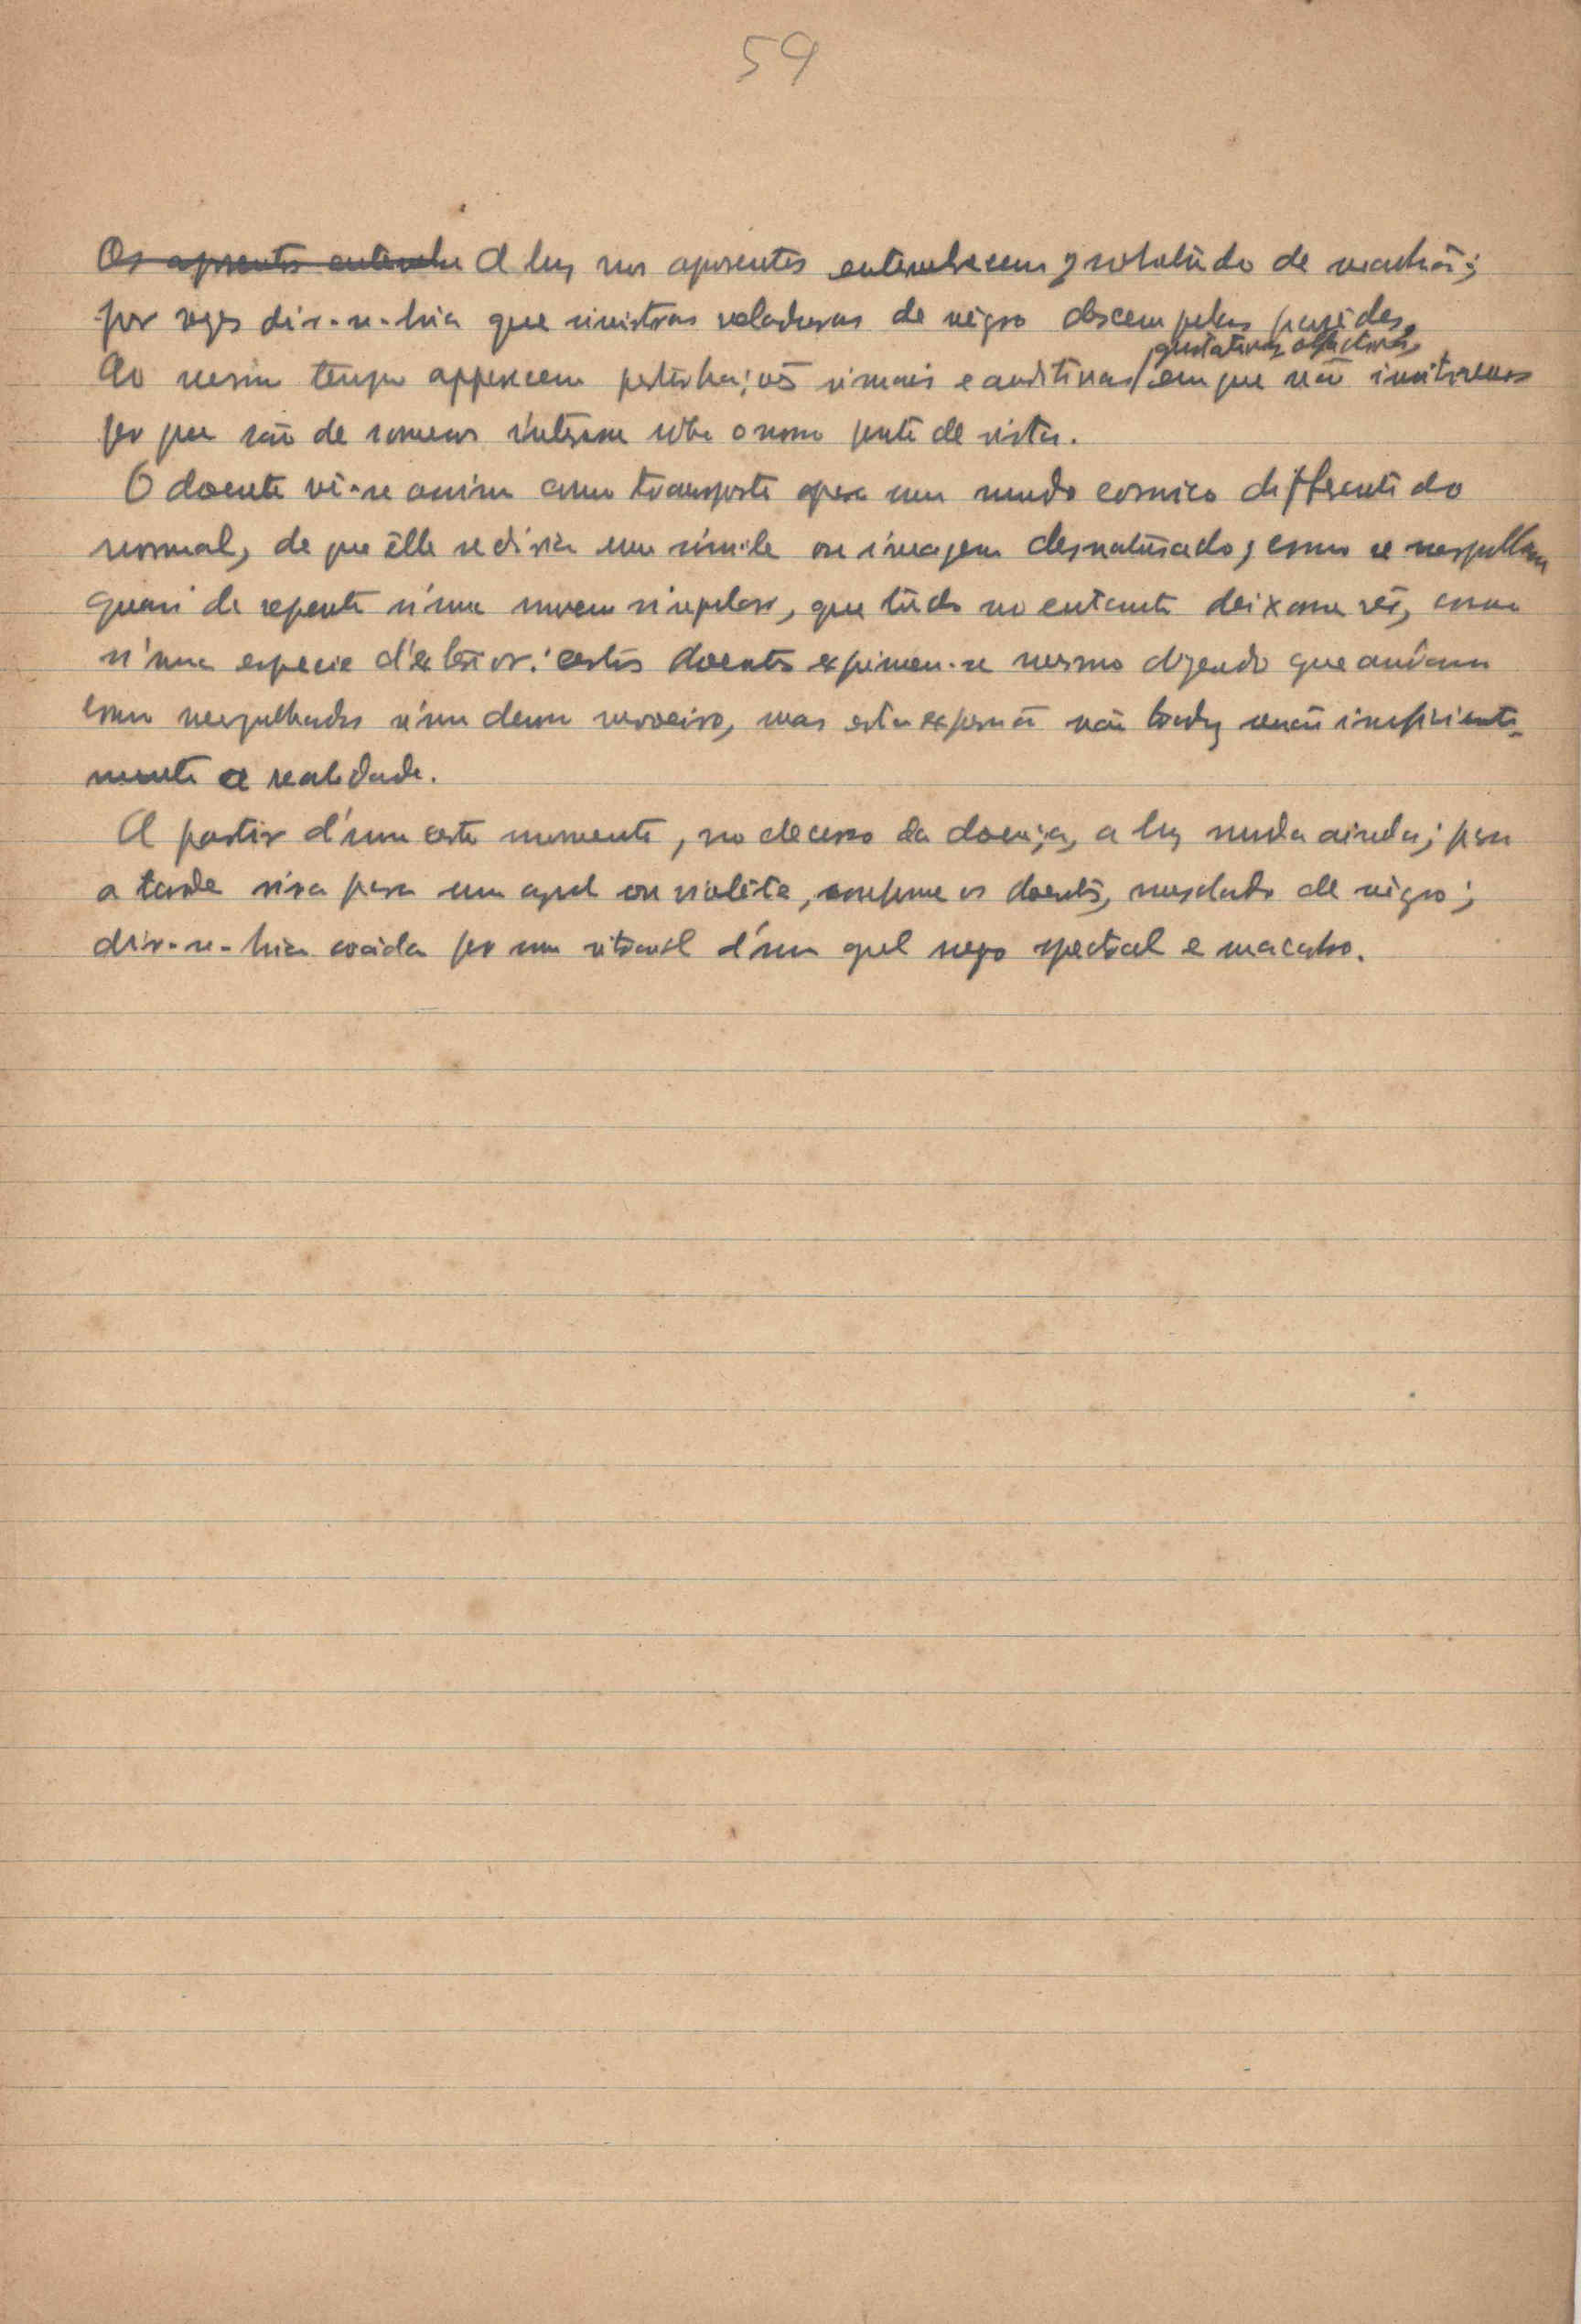 59
Os aposentos entenebre A luz nos aposentos entenebrecem, sobretudo de manhã;
por vezes dir-se-hia que sinistras veladuras de négro descem pelas parêdes.
gustativas, olfactivas,
Ao mesmo tempo apparecem perturbações visuais e auditivas, em que não insistiremos
por que são de somenos interesse sobre o nosso ponto de vista.
O doente vê-se assim como transposto para um mundo cosmico differente do
normal, de que êlle se diria um simile ou imagem desnaturado, como se mergulhasse
quasi de repente n'uma nuvem singular, que tudo no entanto deixasse vêr, como
n'uma especie d'exterior: certos doentes exprimem-se mesmo dizendo que andam
como mergulhados n'um denso nevoeiro, mas esta expressão não traduz senão insuficiente-
mente a realidade.
A partir d'um certo momento, no decurso da doença, a luz muda ainda; para
a tarde vira para um azul ou violêta, conforme os doentes, mesclado de négro;
dir-se-hia coáda por um vitral d'um azul negro spectral e macabro.